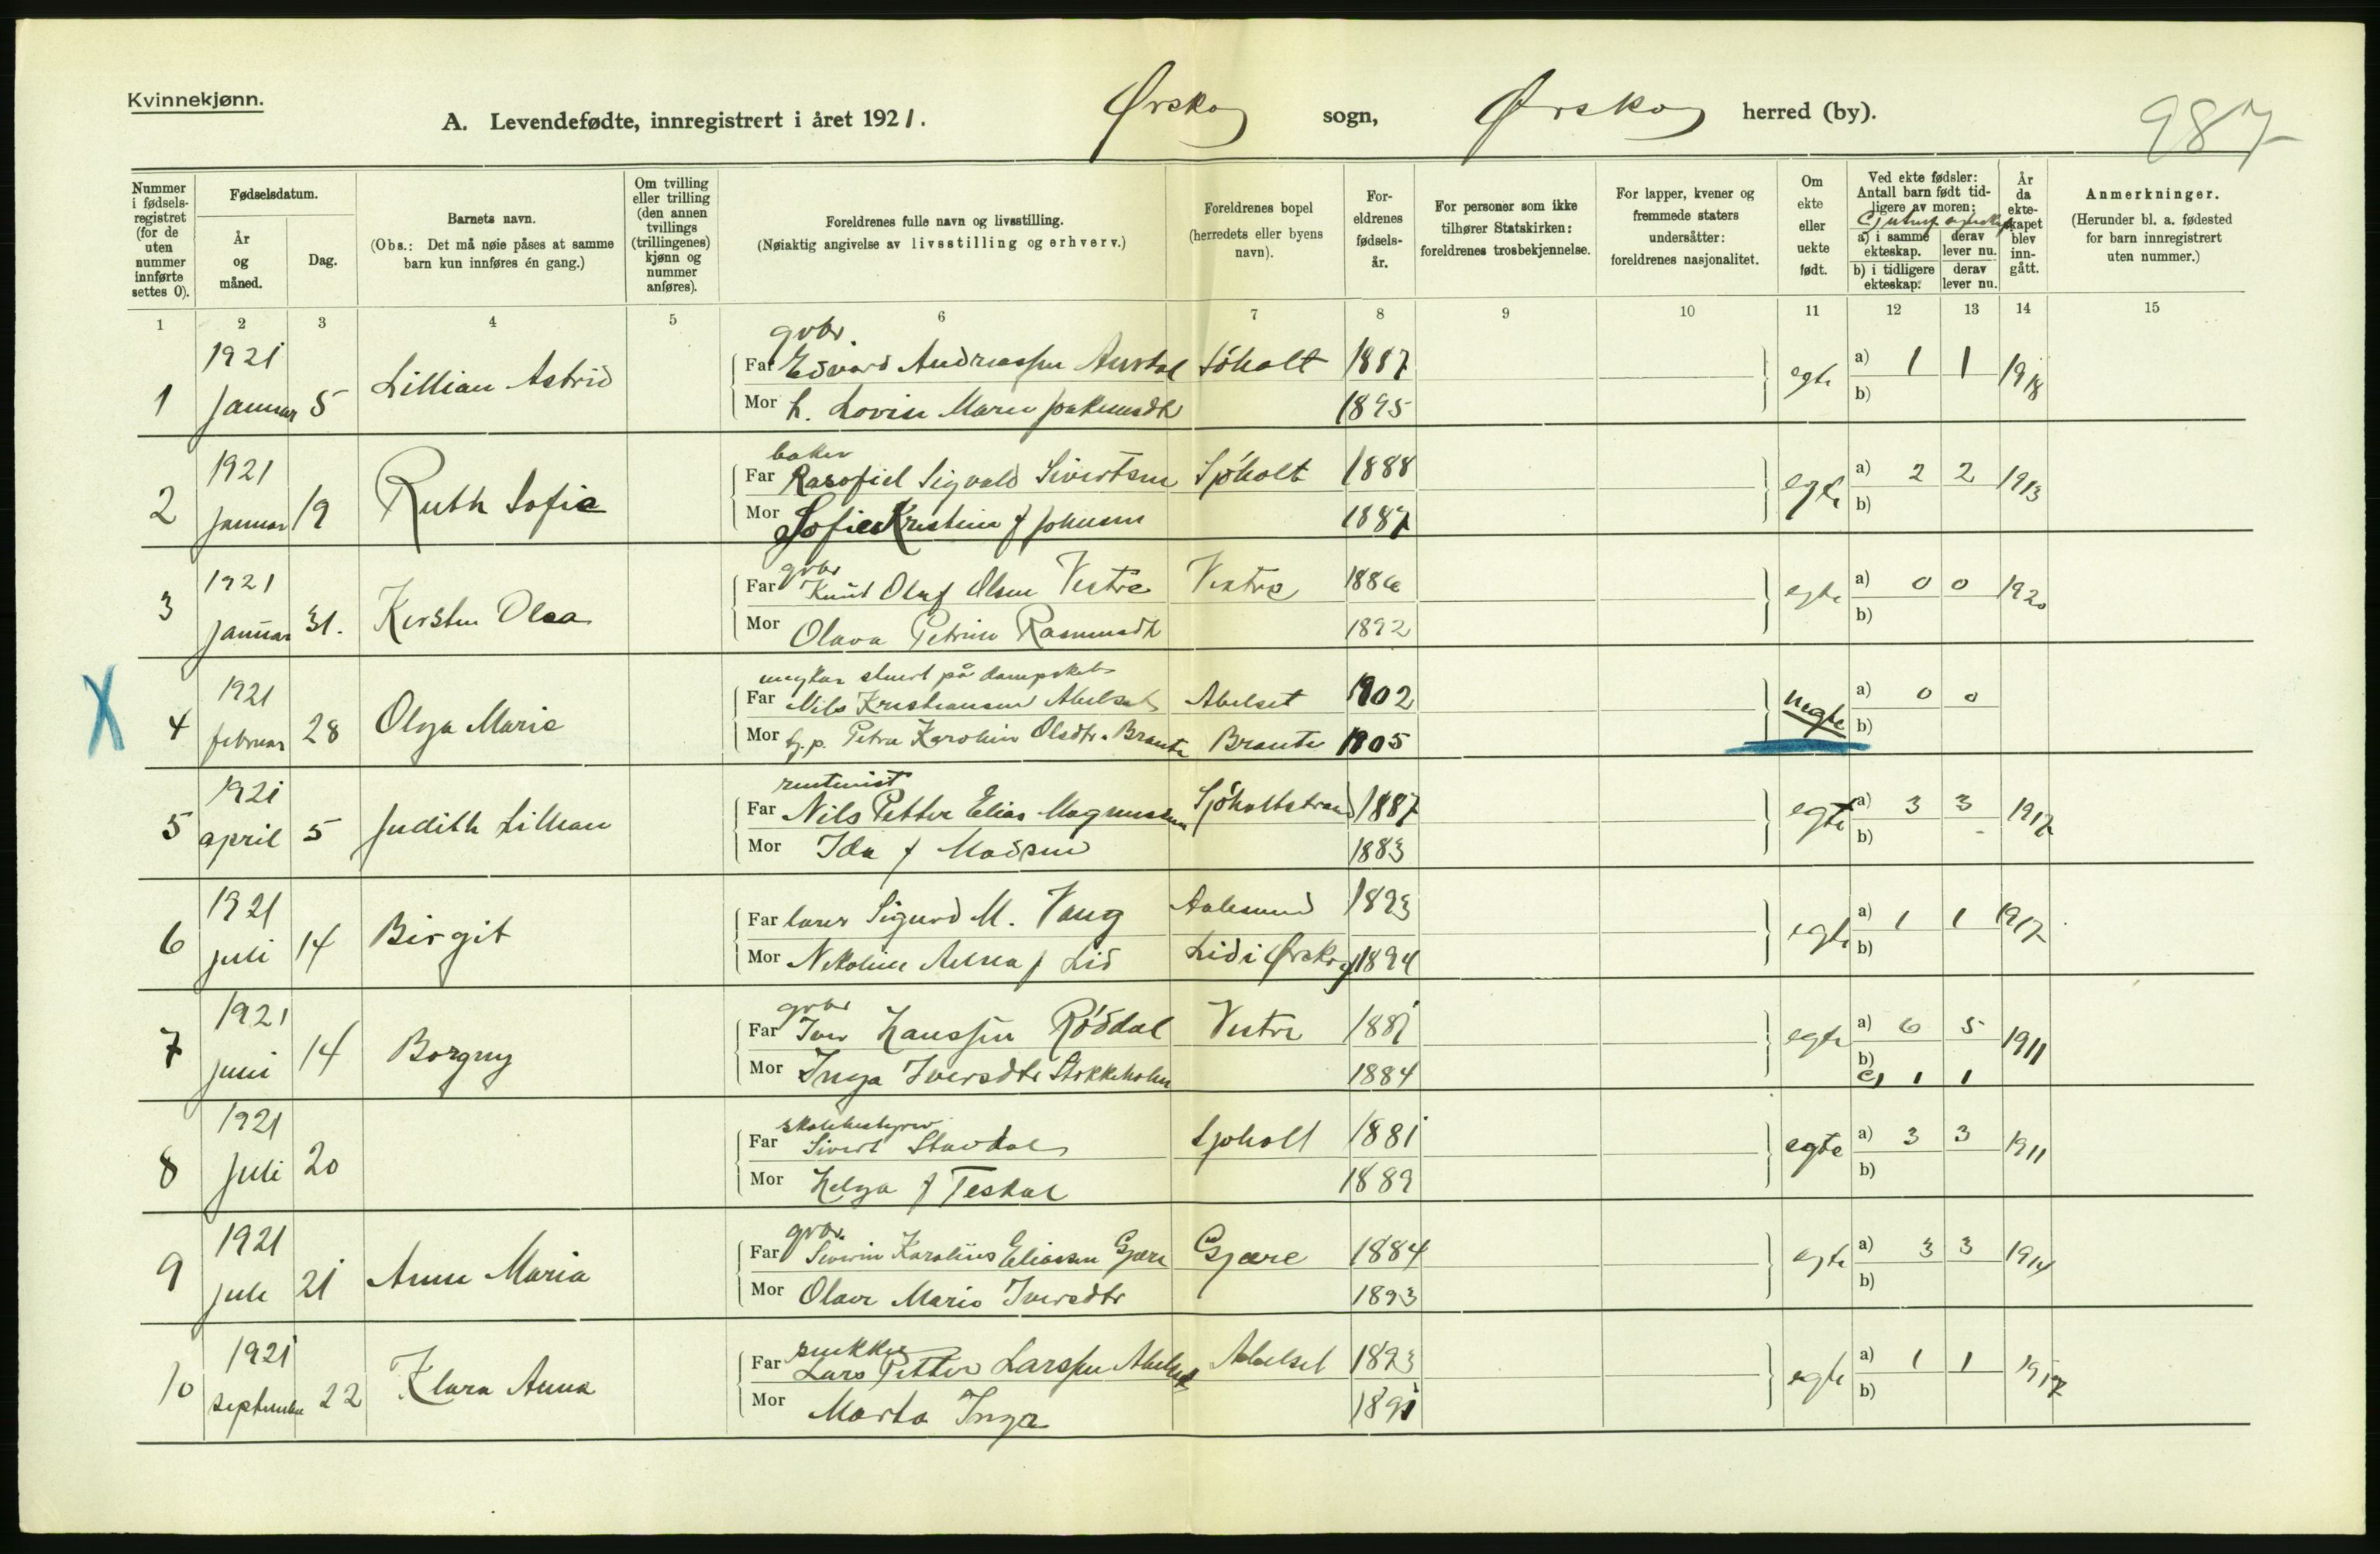 Kvinnekjønn.
A. Levendefødte, innregistrert i året 1921. Ørskog sogn, Ørskog herred (by).
987
Nummer i fødselsregistret (for de uten nummer innførte settes 0).
Fødselsdatum.
År og måned.
Dag.
Barnets navn.
(Obs.: Det må nøie påses at samme barn kun innføres én gang.)
Om tvilling eller trilling (den annen tvillings (trillingenes) kjønn og nummer anføres).
Foreldrenes fulle navn og livsstilling.
(Nøiaktig angivelse av livsstilling og erhverv.)
Foreldrenes bopel (herredets eller byens navn).
Foreldrenes fødselsår.
For personer som ikke tilhører Statskirken: foreldrenes trosbekjennelse.
For lapper, kvener og fremmede staters undersåtter: foreldrenes nasjonalitet.
Om ekte eller uekte født.
Ved ekte fødsler: Antall barn født tidligere av moren:
a) i samme ekteskap. derav lever nu.
b) i tidligere ekteskap. derav lever nu.
År da ekteskapet blev inngått.
Anmerkninger.
(Herunder bl. a. fødested for barn innregistrert uten nummer.)
1 2 3 4 5 6 7 8 9 10 11 12 13 14 15
gbr.
1 1921 januar 5 Lillian Astrid Far Edvard Andreassen Aurdal Søholt 1887 egte a) 1 1 1918
Mor h. Lovise Maren 1895 b)
baker
2 1921 januar 19 Ruth Sofie Far Sigvald Sivertsen Sjøholt 1888 egte a) 2 2 1913
Mor Sofie Kristine f Johnsen 1887 b)
gbr
3 1921 januar 31. Kirsten Olea Far Knut Olaf Olsen Vestre Vestre 1886 egte a) 0 0 1920
Mor Olava Petrine Rasmusdtr 1892 b)
ungkar stuert på dampskib
X 4 1921 februar 28 Olga Marie Far Nils Kristiansen Abelset Abelset 1902 uegte a) 0 0
Mor Petra Karoline Olsdtr. Brautе Braute 1905 b)
rentenist
5 1921 april 5 Judith Lillian Far Nils Petter Elias Magnussen Sjøholtstrand 1887 egte a) 3 3 1917
Mor Ida f Madsen 1883 b)
6 1921 juli 14 Birgit Far lærer Sigurd M. Vaug Aalesund 1893 egte a) 1 1 1917
Mor Nikoline Anna f Lid Lid i Ørskog 1894 b)
gbr
7 1921 juni 14 Borgny Far Iver Hanssen Røddal Vestre 1881 egte a) 6 5 1911
Mor Inga Iversdtr Stokkeholm 1884 b)
c) 1 1
skolebestyrer
8 1921 juli 20 Far Sivert Stavdal Sjøholt 1881 egte a) 3 3 1911
Mor Helga f Teskal 1889 b)
gbr.
9 1921 juli 21 Anne Maria Far Severin Karolius Eliassen Gjære Gjære 1884 egte a) 3 3 1914
Mor Olave Marie Iversdtr 1893 b)
snekker
10 1921 september 22 Klara Anna Far Lars Petter Larssen Abelset Abelset 1893 egte a) 1 1 1917
Mor Marta Inga 1891 b)